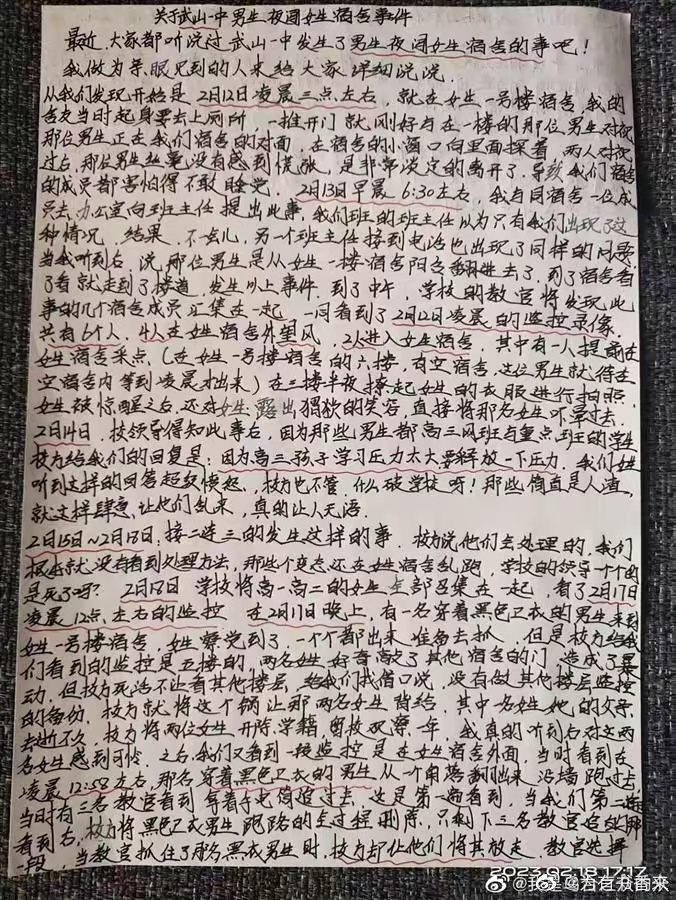 关于武山一中男生夜闯女生宿舍事件
最近,大家都听说过武山一中发生了男生夜闯女生宿舍的事吧!
我做为亲眼见到的人来给大家详细说说.
从我们发现开始是2月12日凌晨三点左右,就在女生一号楼宿舍,我的
舍友当时起身要去上厕所,一推开门就刚好与在一楼的那位男生对视
那位男生正在我们宿舍的对面,在宿舍的小窗口向里面探着,两人对视
过后,那位男生丝毫没有感到慌张,是非常淡定的离开了.导致我们宿舍
的成员都害怕得不敢睡觉. 2月13日早晨6:30左右,我与同宿舍一位成
员去办公室向班主任提出此事,我们班的班主任以为只有我们出现了这
种情况,结果,不一会儿,另一个班主任接到电话也出现了同样的问题
当我听到后,说,那位男生是从女生一楼宿舍阳台翻进去了,到了宿舍看
了看就走到了楼道,发生以上事件.到了中午,学校的教官将发现此
事的几个宿舍成员汇集在一起,一同看到了2月12日凌晨的监控录像.
共有6个人,4人在女生宿舍外望风,2人进入女生宿舍,其中有一人提前在
女生宿舍采点(在女生一号楼宿舍的六楼,有空宿舍,这位男生就待在
空宿舍内等到凌晨才出来)在三楼半夜撩起女生的衣服进行拍照.
女生被惊醒之后,还对女生露出猥狄的笑容,直接将那名女生吓晕过去.
2月14日,校领导得知此事后,因为那些男生都高三网班与重点班的学生
校方给我们的回复是:因为高三孩子学习压力太大要释放一下压力.我们女生
听到这样的回答超级愤怒,校方也不管,什么破学校呀!那些简直是人渣,
就这样肆意让他们乱来,真的让人无语.
2月15日~2月18日,接二连三的发生这样的事.校方说他们去处理的,我们
根本就没有看到处理方法,那些个变态还在女生宿舍乱跑,学校的领导一个个的
是死了吗? 2月18日 学校将高一高二的女生全部召集在一起,看了2月17日
凌晨12点左右的监控 在2月17日晚上,有一名穿着黑色卫衣的男生来到
女生一号楼宿舍,女生察觉到了,一个个都出来准备去抓,但是校方给我
们看到的监控是五楼的,两名女生好奇敲了其他宿舍的门,造成了暴
动,但校方死活不让看其他楼层,给我们找借口说,没有做其他楼层监控
的备份,校方就将这个锅让那两名女生背给,其中一名女生她的父亲
去逝不久,校方将两位女生开除学籍,留校观察一年,我真的听到后对这两
名女生感到可怜.之后,我们又看到一段监控是在女生宿舍外面,当时看到在
凌晨12:58左右,那名穿着黑色卫衣的男生从一个角落翻出来,沿墙跑过去
当时有三名教官看到拿着手电筒追过去,这是第一遍看到,当我们第二遍
看到后,校方将黑色卫衣男生跑路的全过程删除,只剩下三名教官追的那
一段 当教官抓住了那名黑衣男生时,校方却让他们将其放走 教官选择
2023.02.18 17:17